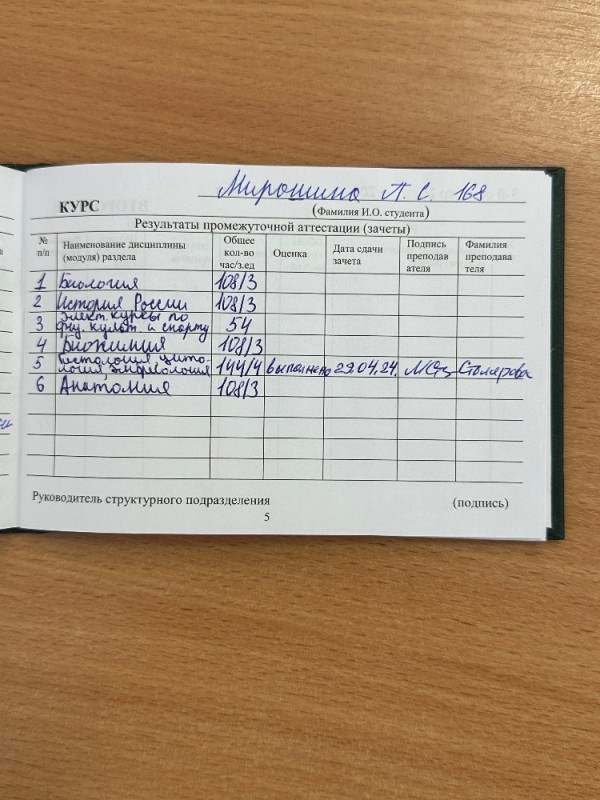 Мирошина А. С. 168.
КУРС
(Фамилия И.О. студента)
Результаты промежуточной аттестации (зачеты)
№ п/п Наименование дисциплины (модуля) раздела Общее кол-во час/з.ед Оценка Дата сдачи зачета Подпись преподав ателя Фамилия преподава теля
1 Биология 108/3
2 История России 108/3
3 Элект. курсы по физ. культ. и спорту 54
4 Биохимия 108/3
5 Гистология, цитология, эмбриология 144/4 выполнено 29.04.24. Столярова
6 Анатомия 108/3
Руководитель структурного подразделения (подпись)
5